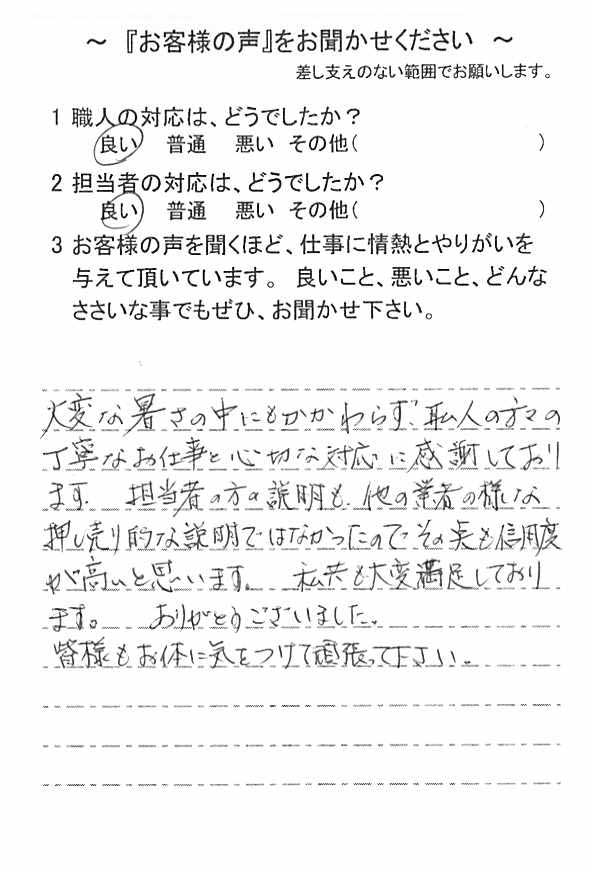 ～ 『お客様の声』をお聞かせください ～
差し支えのない範囲でお願いします。
1 職人の対応は、どうでしたか？
良い 普通 悪い その他( )
2 担当者の対応は、どうでしたか？
良い 普通 悪い その他( )
3 お客様の声を聞くほど、仕事に情熱とやりがいを
与えて頂いています。 良いこと、悪いこと、どんな
ささいな事でもぜひ、お聞かせ下さい。
大変な暑さの中にもかかわらず、職人の方々の
丁寧なお仕事と心切な対応に感謝しており
ます。 担当者の方の説明も、他の業者の様な
押し売り的な説明ではなかったのでその点も信用度
が高いと思います。 私共も大変満足しており
ます。 ありがとうございました。
皆様もお体に気をつけて頑張って下さい。